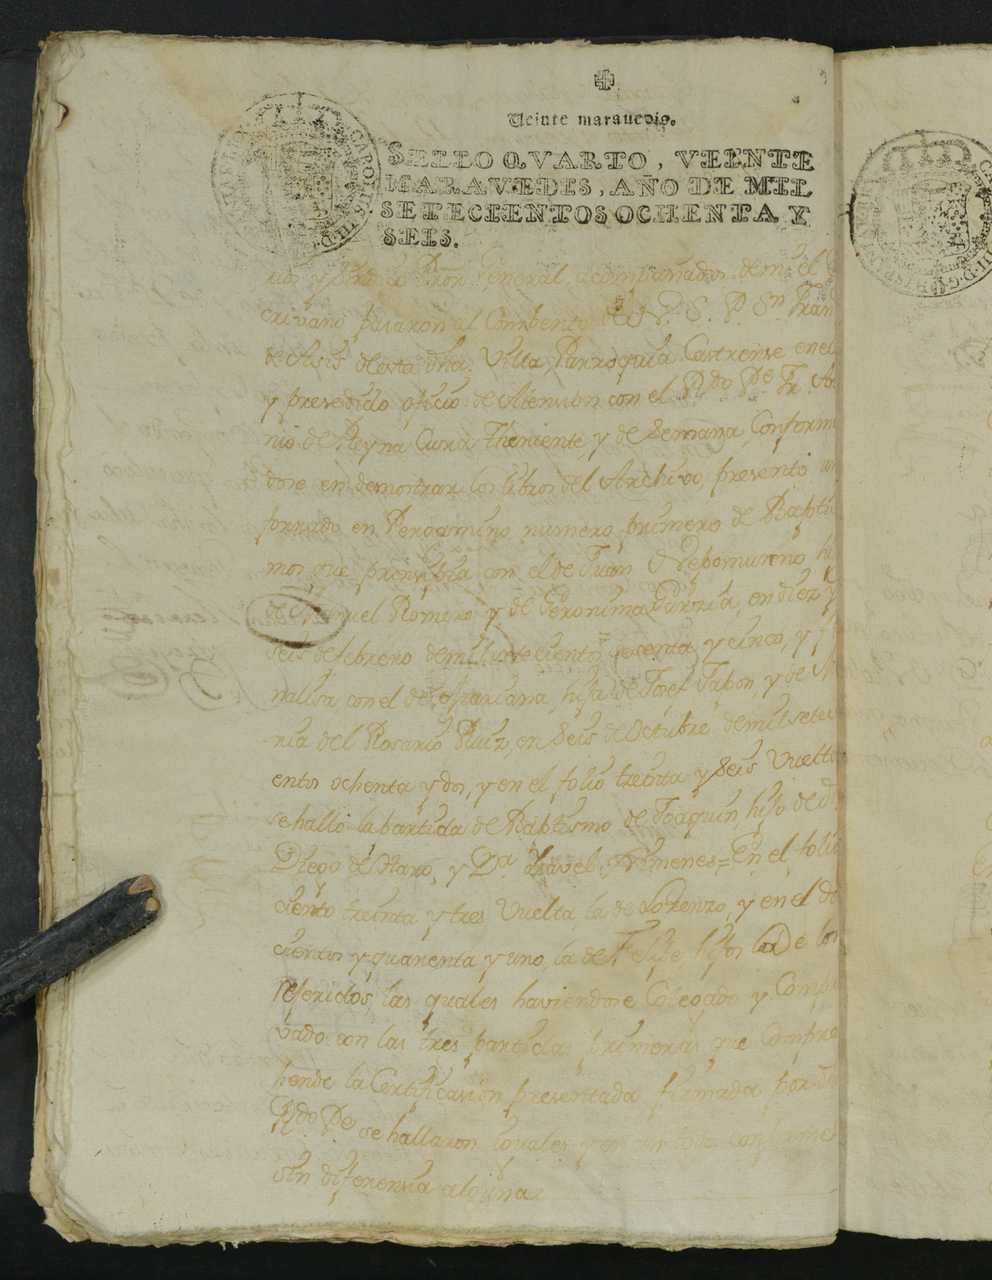 Veinte marauedis.
SELLO QVARTO, VEINTE
MARAVEDIS, AÑO DE MIL
SETECIENTOS OCHENTA Y
SEIS.
General, acompañados de mi el
crivano pasaron al Combento de N. P. S. Sn Fran
de Asis de esta dha. Villa Parroquia Castrense en el
y presedido oficio de Atension con el Rdo Pe Fr. An
nio de Reyna Cura Theniente, y de Semana, Conforma
dose en demostrar los libros del Archivo, presento un
forrado en Pergamino numero primero de Baptis
mos, que prinsipia con el de Juan Nepomuseno hi
de Manuel Romero y de Geronima Garzia, en diez y
seis de febrero de mil setecientos sesenta y cinco, y fi
nalisa con el de Mariana, hija de Josef Tabon, y de Ma
ria del Rosario Ruiz, en Seis de Octubre de mil setesi
entos ochenta y dos, y en el folio treinta y Seis Vuelto
se halló la partida de Babtismo de Joaquin, hijo de Dn
Diego de Haro, y Da Isavel Ximenes = En el folio
ciento treinta y tres Vuelta, la de Lorenzo, y en el do
cientos y quarenta y uno, la de Felipe hijos De los
referidos, las quales haviendose Cotegado y Compro
vado con las tres partidas primeras que Compre
hende la Certificasion presentada firmada por dho
Rdo Pe se hallaron yguales y en un todo conforme
sin diferensia alguna